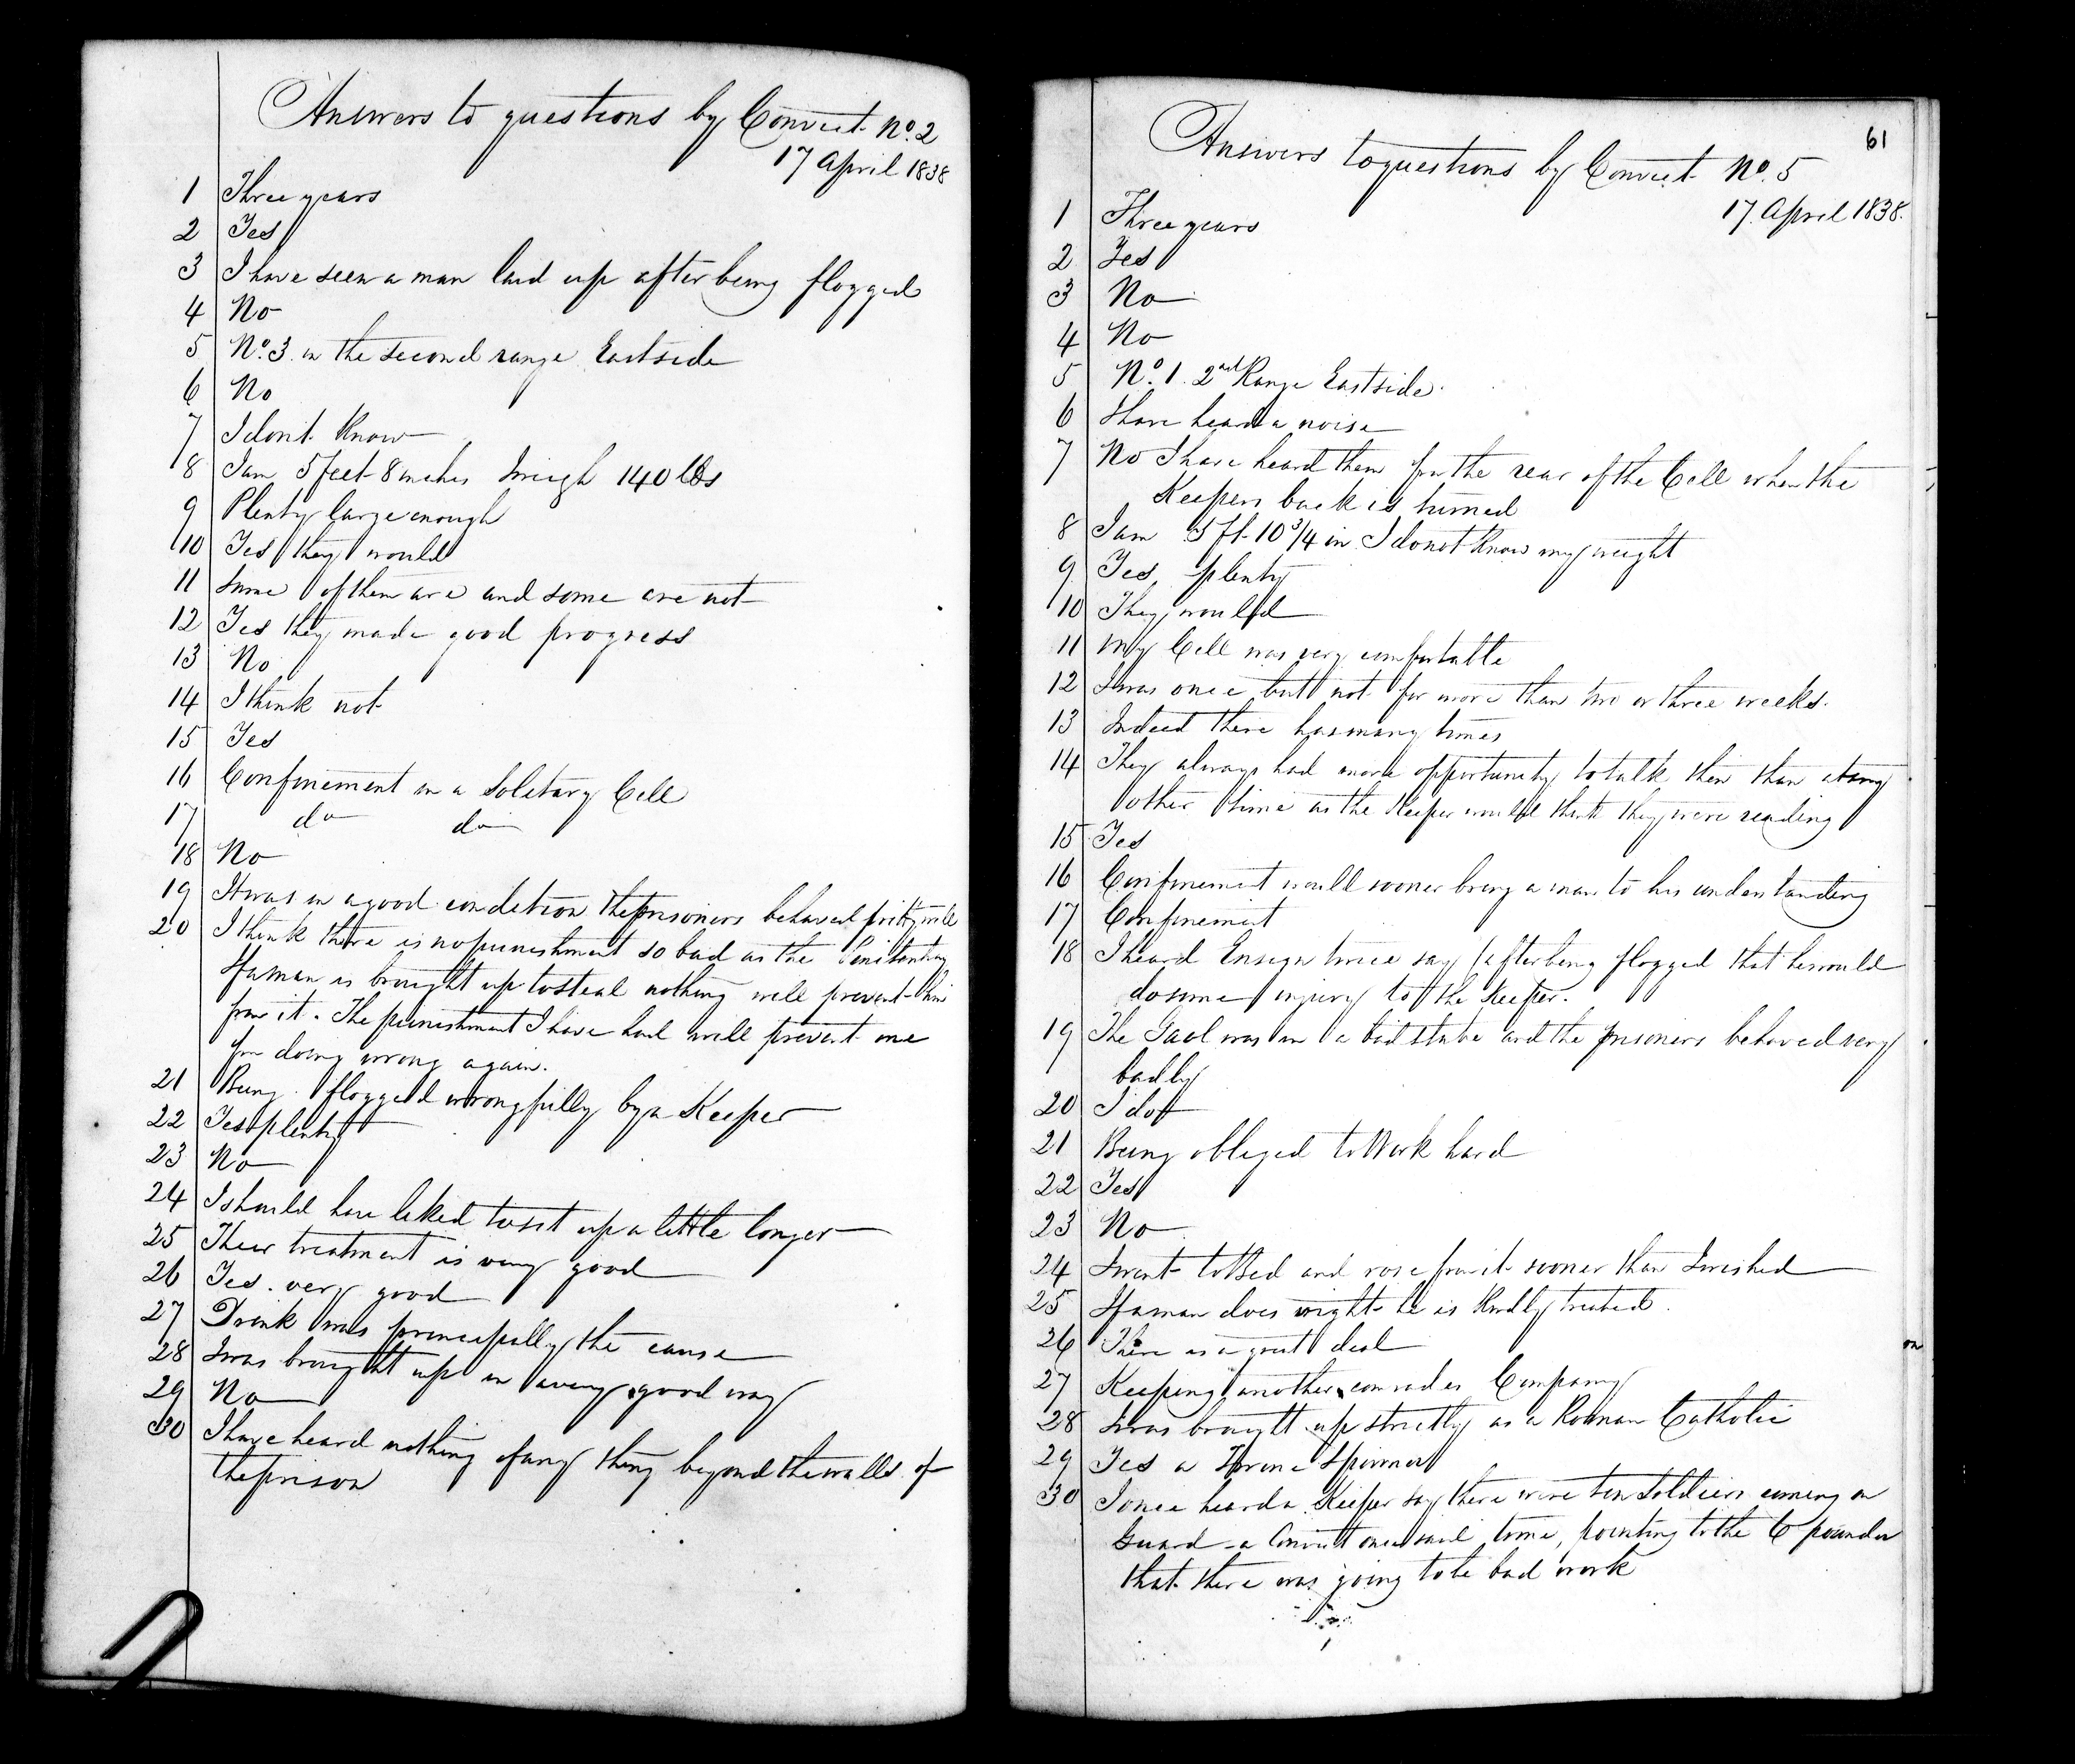 Answers to questions by Convict No. 2
17 April 1838
1 Three years
2 Yes
3 I have seen a man laid up after being flogged
4 No
5 No. 3 in the second range Eastside
6 No
7 I dont Know
8 I am 5 feet 8 inches I weigh 140 lbs
9 Plenty large enough
10 Yes they would
11 Some of them are and some are not
12 Yes they made good progress
13 No
14 I think not
15 Yes
16 Confinement in a Solitary Cell
17 do do
18 No
19 It was in a good condition the prisoners behaved pritty well
20 I think there is no punishment so bad as the Penitentiary
If a man is brought up to steal nothing will prevent him
from it. The punishment I have had will prevent me
from doing wrong again.
21 Being flogged wrongfully by a Keeper
22 Yes plenty
23 No
24 I should have liked to sit up a little longer
25 Their treatment is very good
26 Yes. very good
27 Drink was principally the cause
28 I was brought up in a very good way
29 No
30 I have heard nothing of any thing beyond the walls of
the prison
61
Answers to questions by Convict No. 5
17. April 1838.
1 Three years
2 Yes
3 No
4 No
5 No. 1. 2nd Range Eastside.
6 I have heard a noise
7 No I have heard them from the rear of the Cell when the
Keepers back is turned
8 I am 5 ft 10 3/4 in I do not Know my weight
9 Yes, plenty
10 They would
11 My Cell was very comfortable
12 I was once but not for more than two or three weeks.
13 Indeed there has many times
14 They always had more opportunity to talk then than at any
other time as the Keeper would think they were reading
15 Yes
16 Confinement would sooner bring a man to his understanding
17 Confinement
18 I heard Ensign twice say (after being flogged that he would
do some injury to the Keeper.
19 The Gaol was in a bad state and the prisoners behaved very
badly
20 I do
21 Being obliged to Work hard
22 Yes
23 No
24 I went to Bed and rose from it sooner than I wished
25 If a man does right he is Kindly treated.
26 There is a great deal
27 Keeping another comrades Company
28 I was brought up strictly as a Roman Catholic
29 Yes a Spinner
30 I once heard a Keeper say there were ten Soldiers coming on
Guard - a Convict once said to me, pointing to the 6 pounder
that there was going to be bad work
on